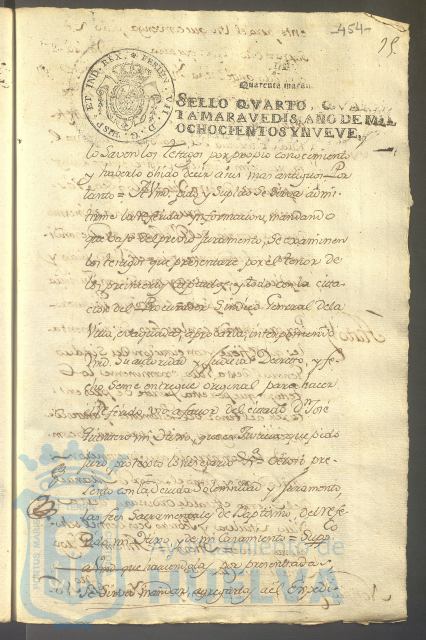 454
95
HISP. ET IND. REX. FERDIN. VII. D. G.
Quarenta marav.
SELLO QVARTO, QVAREN
TA MARAVEDIS, AÑO DE MIL
OCHOCIENTOS Y NVEVE.
lo saven los testigos por propio conocimiento
y haverlo ohido decir a sus mas antiguos = Por
tanto = A Vmd. pido y suplico se sirva admi-
tirme la referida Informacion, mandando
que bajo del previo juramento, se examinen
los testigos que presentare por el tenor de
los preinsertos capitulos, y todo con la cita-
cion del Procurador Sindico General de la
Villa, evaquada, aprobarla, interponiendo
Vmd. su autoridad y judicial Decreto, y fe-
cho se me entregue original para hacer
el referido uso a favor del citado Dn. José
Quintero mi Primo, que es Justicia que pido
juro, protesto lo necesario = Otrosi pre-
sento con la devida solemnidad y juramento,
las fees Sacramentales de Baptismo del refe-
rido mi Primo, y de mi Casamiento = Supco.
a Vmd. que haviendola por presentada
se sirva mandar, agregarla al Expedi-
Ayuntamiento de
HUELVA